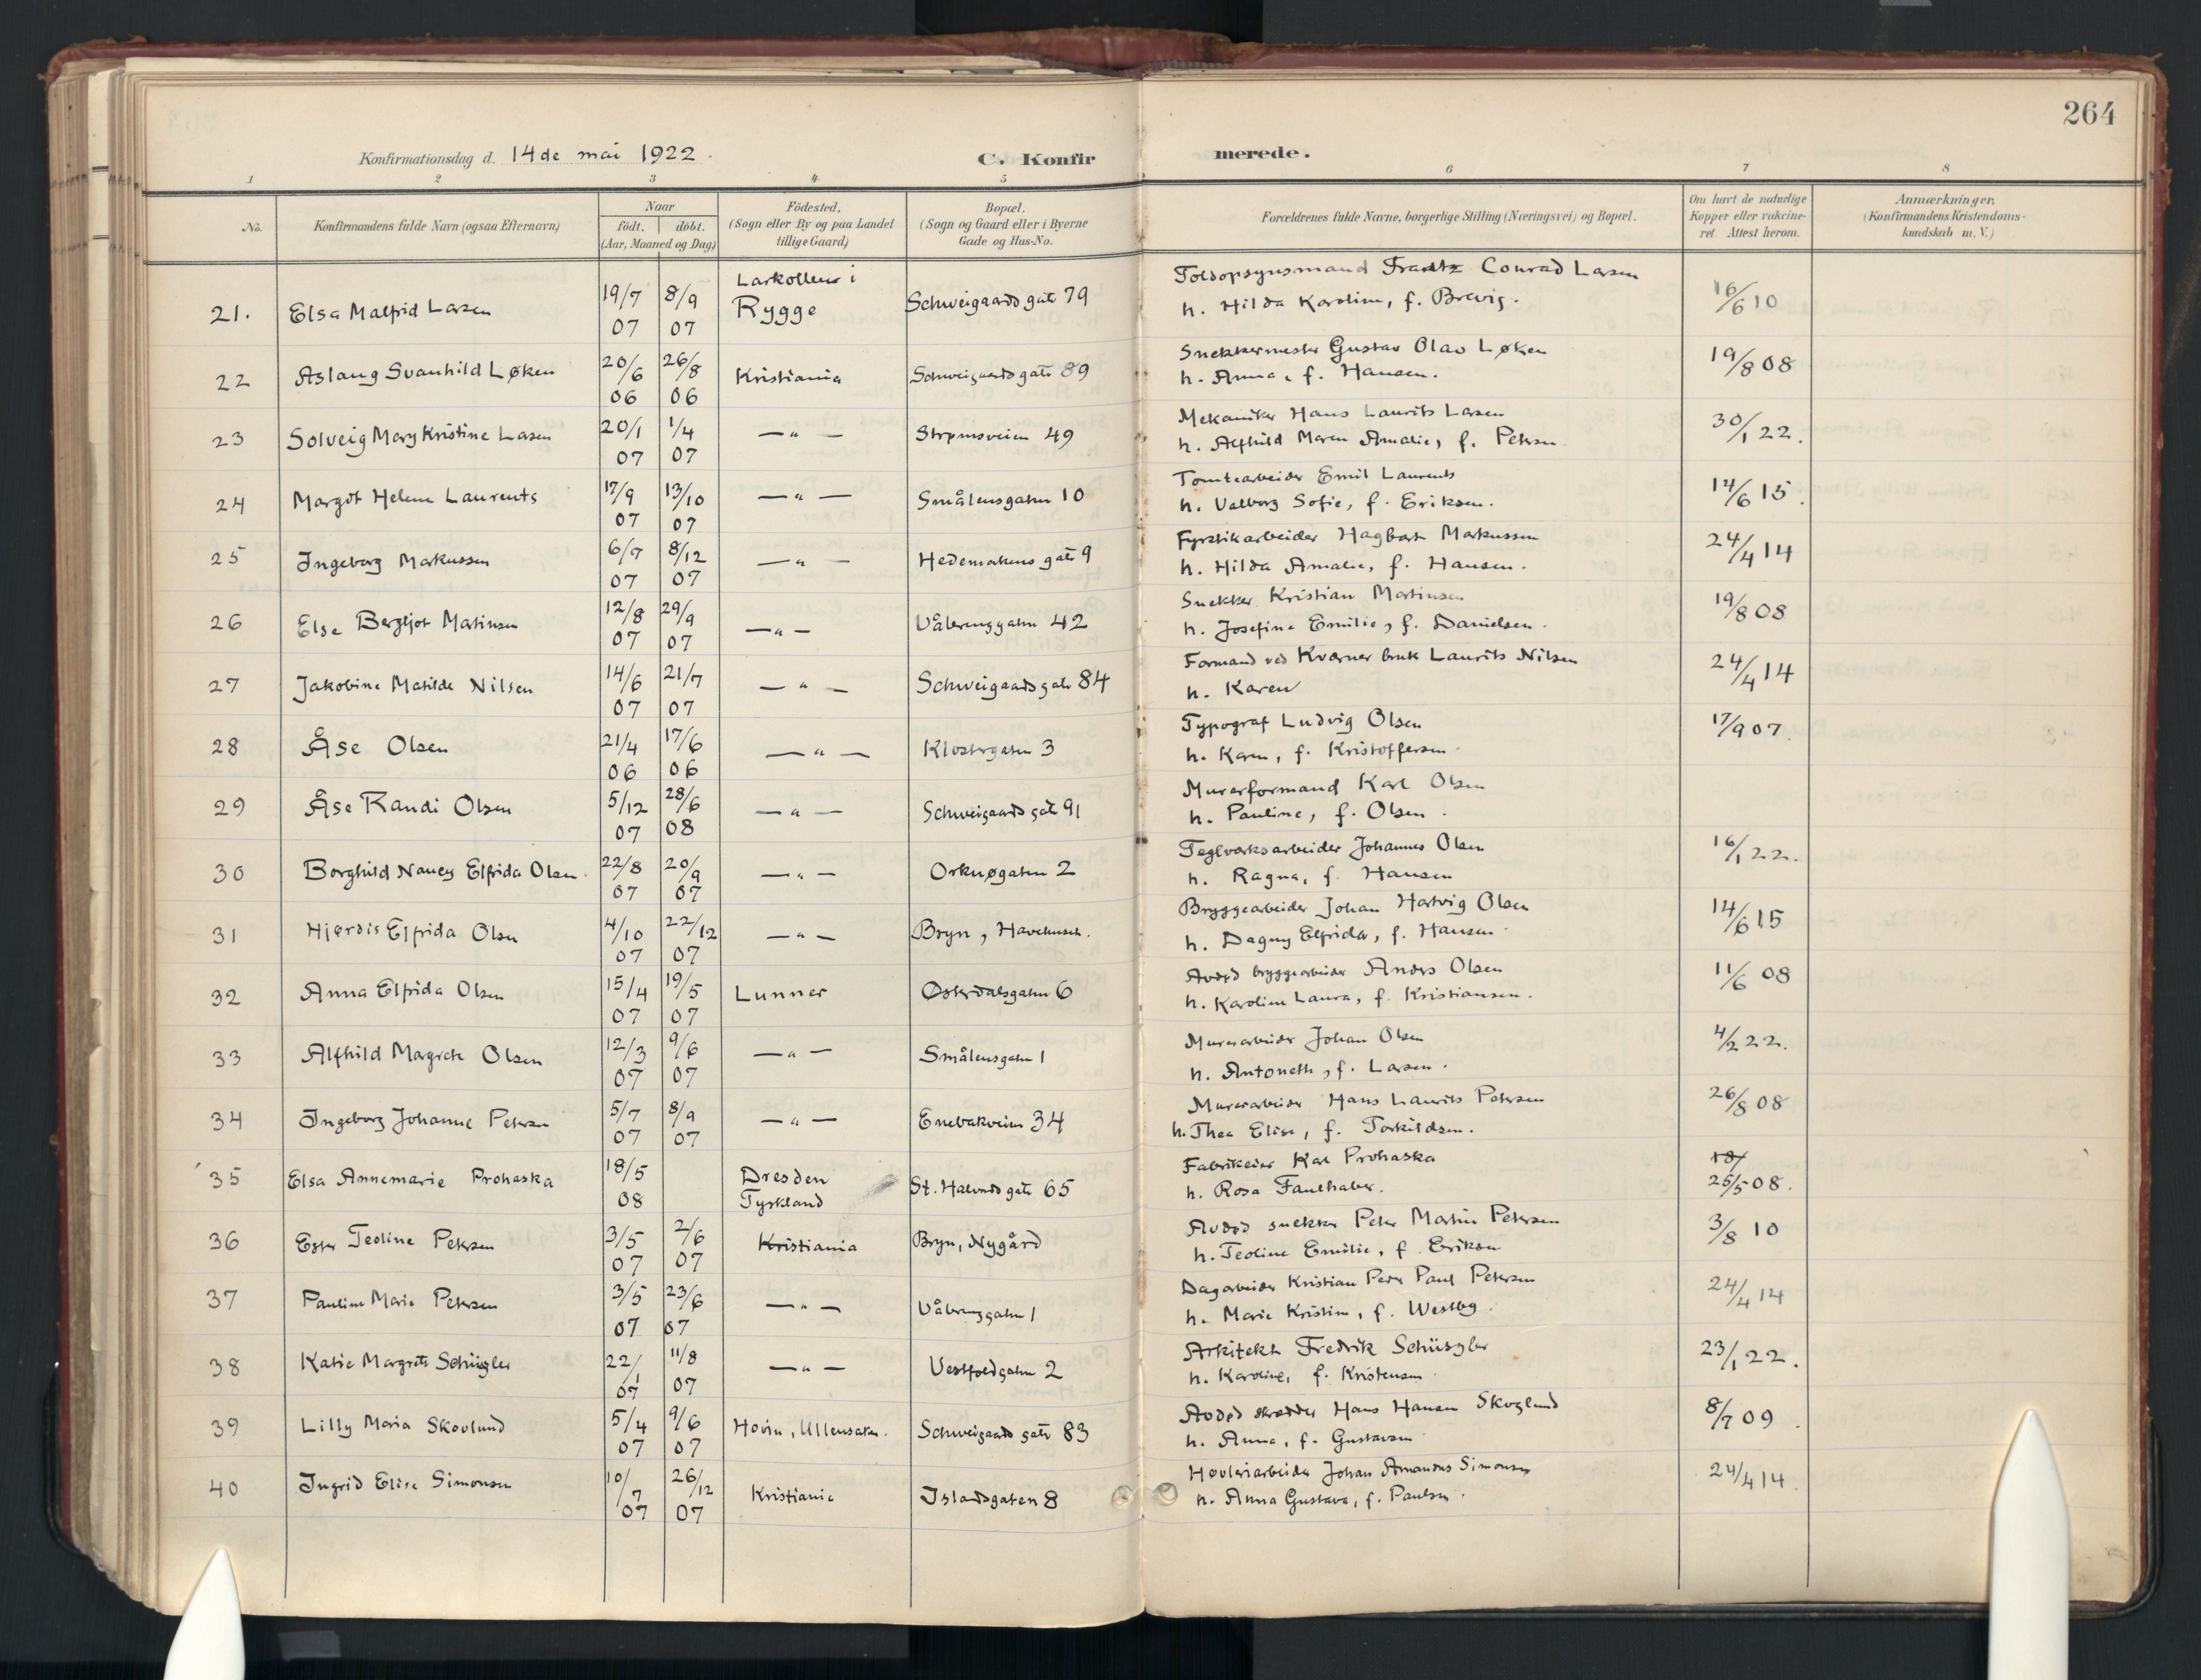 264
Konfirmationsdag d. 14de mai 1922.
C. Konfirmerede.
1 2 3 4 5 6 7 8
No.
Konfirmandens fulde Navn (ogsaa Efternavn)
Naar
født. døbt.
(Aar, Maaned og Dag)
Fødested.
(Sogn eller By og paa Landet
tillige Gaard)
Bopæl.
(Sogn og Gaard eller i Byerne
Gade og Hus-No.
Forældrenes fulde Navne, borgerlige Stilling (Næringsvei) og Bopæl.
Om havt de naturlige
Kopper eller vakcine-
ret. Attest herom.
Anmærkninger.
(Konfirmandens Kristendoms-
kundskab m. V.)
21. Elsa Malfrid Larsen 19/7 07 8/9 07 Larkollen i Rygge Schweigaards gate 79 Toldopsynsmand Frantz Conrad Larsen
h. Hilda Karoline, f. Brevig. 16/6 10
22 Aslaug Svanhild Løken 20/6 06 26/8 06 Kristiania Schweigaards gate 89 Snekkermester Gustav Olav Løken
h. Anna, f. Hansen. 19/8 08
23 Solveig Mary Kristine Larsen 20/1 07 1/4 07 — " — Strømsveien 49 Mekaniker Hans Laurits Larsen
h. Alfhild Maren Amalie, f. Petersen 30/1 22.
24 Margot Helene Laurents 17/9 07 13/10 07 — " — Smålensgaten 10 Tomtearbeider Emil Laurents
h. Valborg Sofie, f. Eriksen. 14/6 15.
25 Ingeborg Markussen 6/7 07 8/12 07 — " — Hedemarkens gate 9 Fyrstikarbeider Hagbart Markussen
h. Hilda Amalie, f. Hansen. 24/4 14
26 Else Bergljot Martinsen 12/8 07 29/9 07 — " — Vålerenggaten 42 Snekker Kristian Martinsen
h. Josefine Emilie, f. Danielsen. 19/8 08
27 Jakobine Matilde Nilsen 14/6 07 21/7 07 — " — Schweigaards gate 84 Formand ved Kværner bruk Laurits Nilsen
h. Karen 24/4 14
28 Åse Olsen 21/4 06 17/6 06 — " — Klostergaten 3 Typograf Ludvig Olsen
h. Karen, f. Kristoffersen. 17/9 07.
29 Åse Randi Olsen 5/12 07 28/6 08 — " — Schweigaards gate 91 Murerformand Karl Olsen
h. Pauline, f. Olsen.
30 Borghild Nancy Elfrida Olsen. 22/8 07 20/9 07 — " — Orknøgaten 2 Teglverksarbeider Johannes Olsen
h. Ragna, f. Hansen 16/1 22.
31 Hjørdis Elfrida Olsen 4/10 07 22/12 07 — " — Bryn, Havehuset. Bryggearbeider Johan Hartvig Olsen
h. Dagny Elfrida, f. Hansen 14/6 15
32 Anna Elfrida Olsen 15/4 07 19/5 07 Lunner Østerdalsgaten 6 Avdød bryggearbeider Anders Olsen
h. Karoline Laura, f. Kristiansen. 11/6 08
33 Alfhild Margrete Olsen 12/3 07 9/6 07 — " — Smålensgaten 1 Murerarbeider Johan Olsen
h. Antonette, f. Larsen. 4/2 22.
34 Ingeborg Johanne Petersen 5/7 07 8/9 07 — " — Enebakveien 34 Murerarbeider Hans Laurits Petersen
h. Thea Elise, f. Torkildsen. 26/8 08
35 Elsa Annemarie Prohaska 18/5 08 Dresden Tyskland St. Halvards gate 65 Fabrikeier Karl Prohaska
h. Rosa Faulhaber. 18/ 25/5 08.
36 Ester Teoline Petersen 3/5 07 2/6 07 Kristiania Bryn, Nygård Avdød snekker Peter Martin Petersen
h. Teoline Emilie, f. Eriksen 3/8 10
37 Pauline Marie Petersen 3/5 07 23/6 07 — " — Vålerenggaten 1 Dagarbeider Kristian Peder Paul Petersen
h. Marie Kristine, f. Westby. 24/4 14
38 Katie Margrete Schüszler 22/1 07 11/8 07 — " — Vestfoldgaten 2 Arkitekt Fredrik Schüszler
h. Karoline, f. Kristensen 23/1 22.
39 Lilly Maria Skovlund 5/4 07 9/6 07 Hovin, Ullensaker. Schweigaards gate 83 Avdød skrædder Hans Hansen Skoglund
h. Anna, f. Gustavsen 8/7 09.
40 Ingrid Elise Simonsen 10/7 07 26/12 07 Kristiania Islandsgaten 8 Høvleriarbeider Johan Amandus Simonsen
h. Anna Gustava, f. Paulsen. 24/4 14.